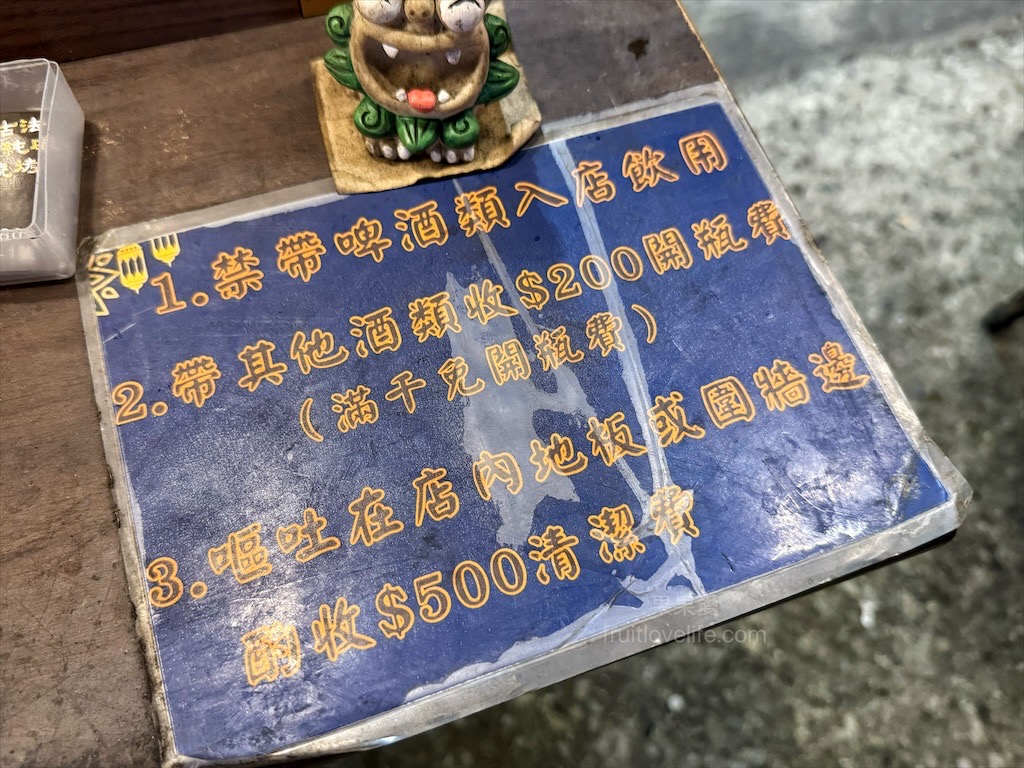 1.禁帶啤酒類入店飲用
2.帶其他酒類收$200開瓶費
(滿千免開瓶費)
3.嘔吐在店內地板或圍牆邊
酌收$500清潔費
fruitlovelife.com